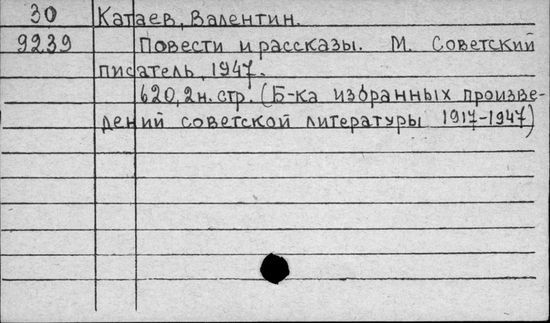 30 Катаев, Валентин.
9239 Повести и рассказы. М. Советский
писатель, 1947.
620, 2 н. стр. (Б-ка избранных произве-
дений советской литературы 1917-1947)